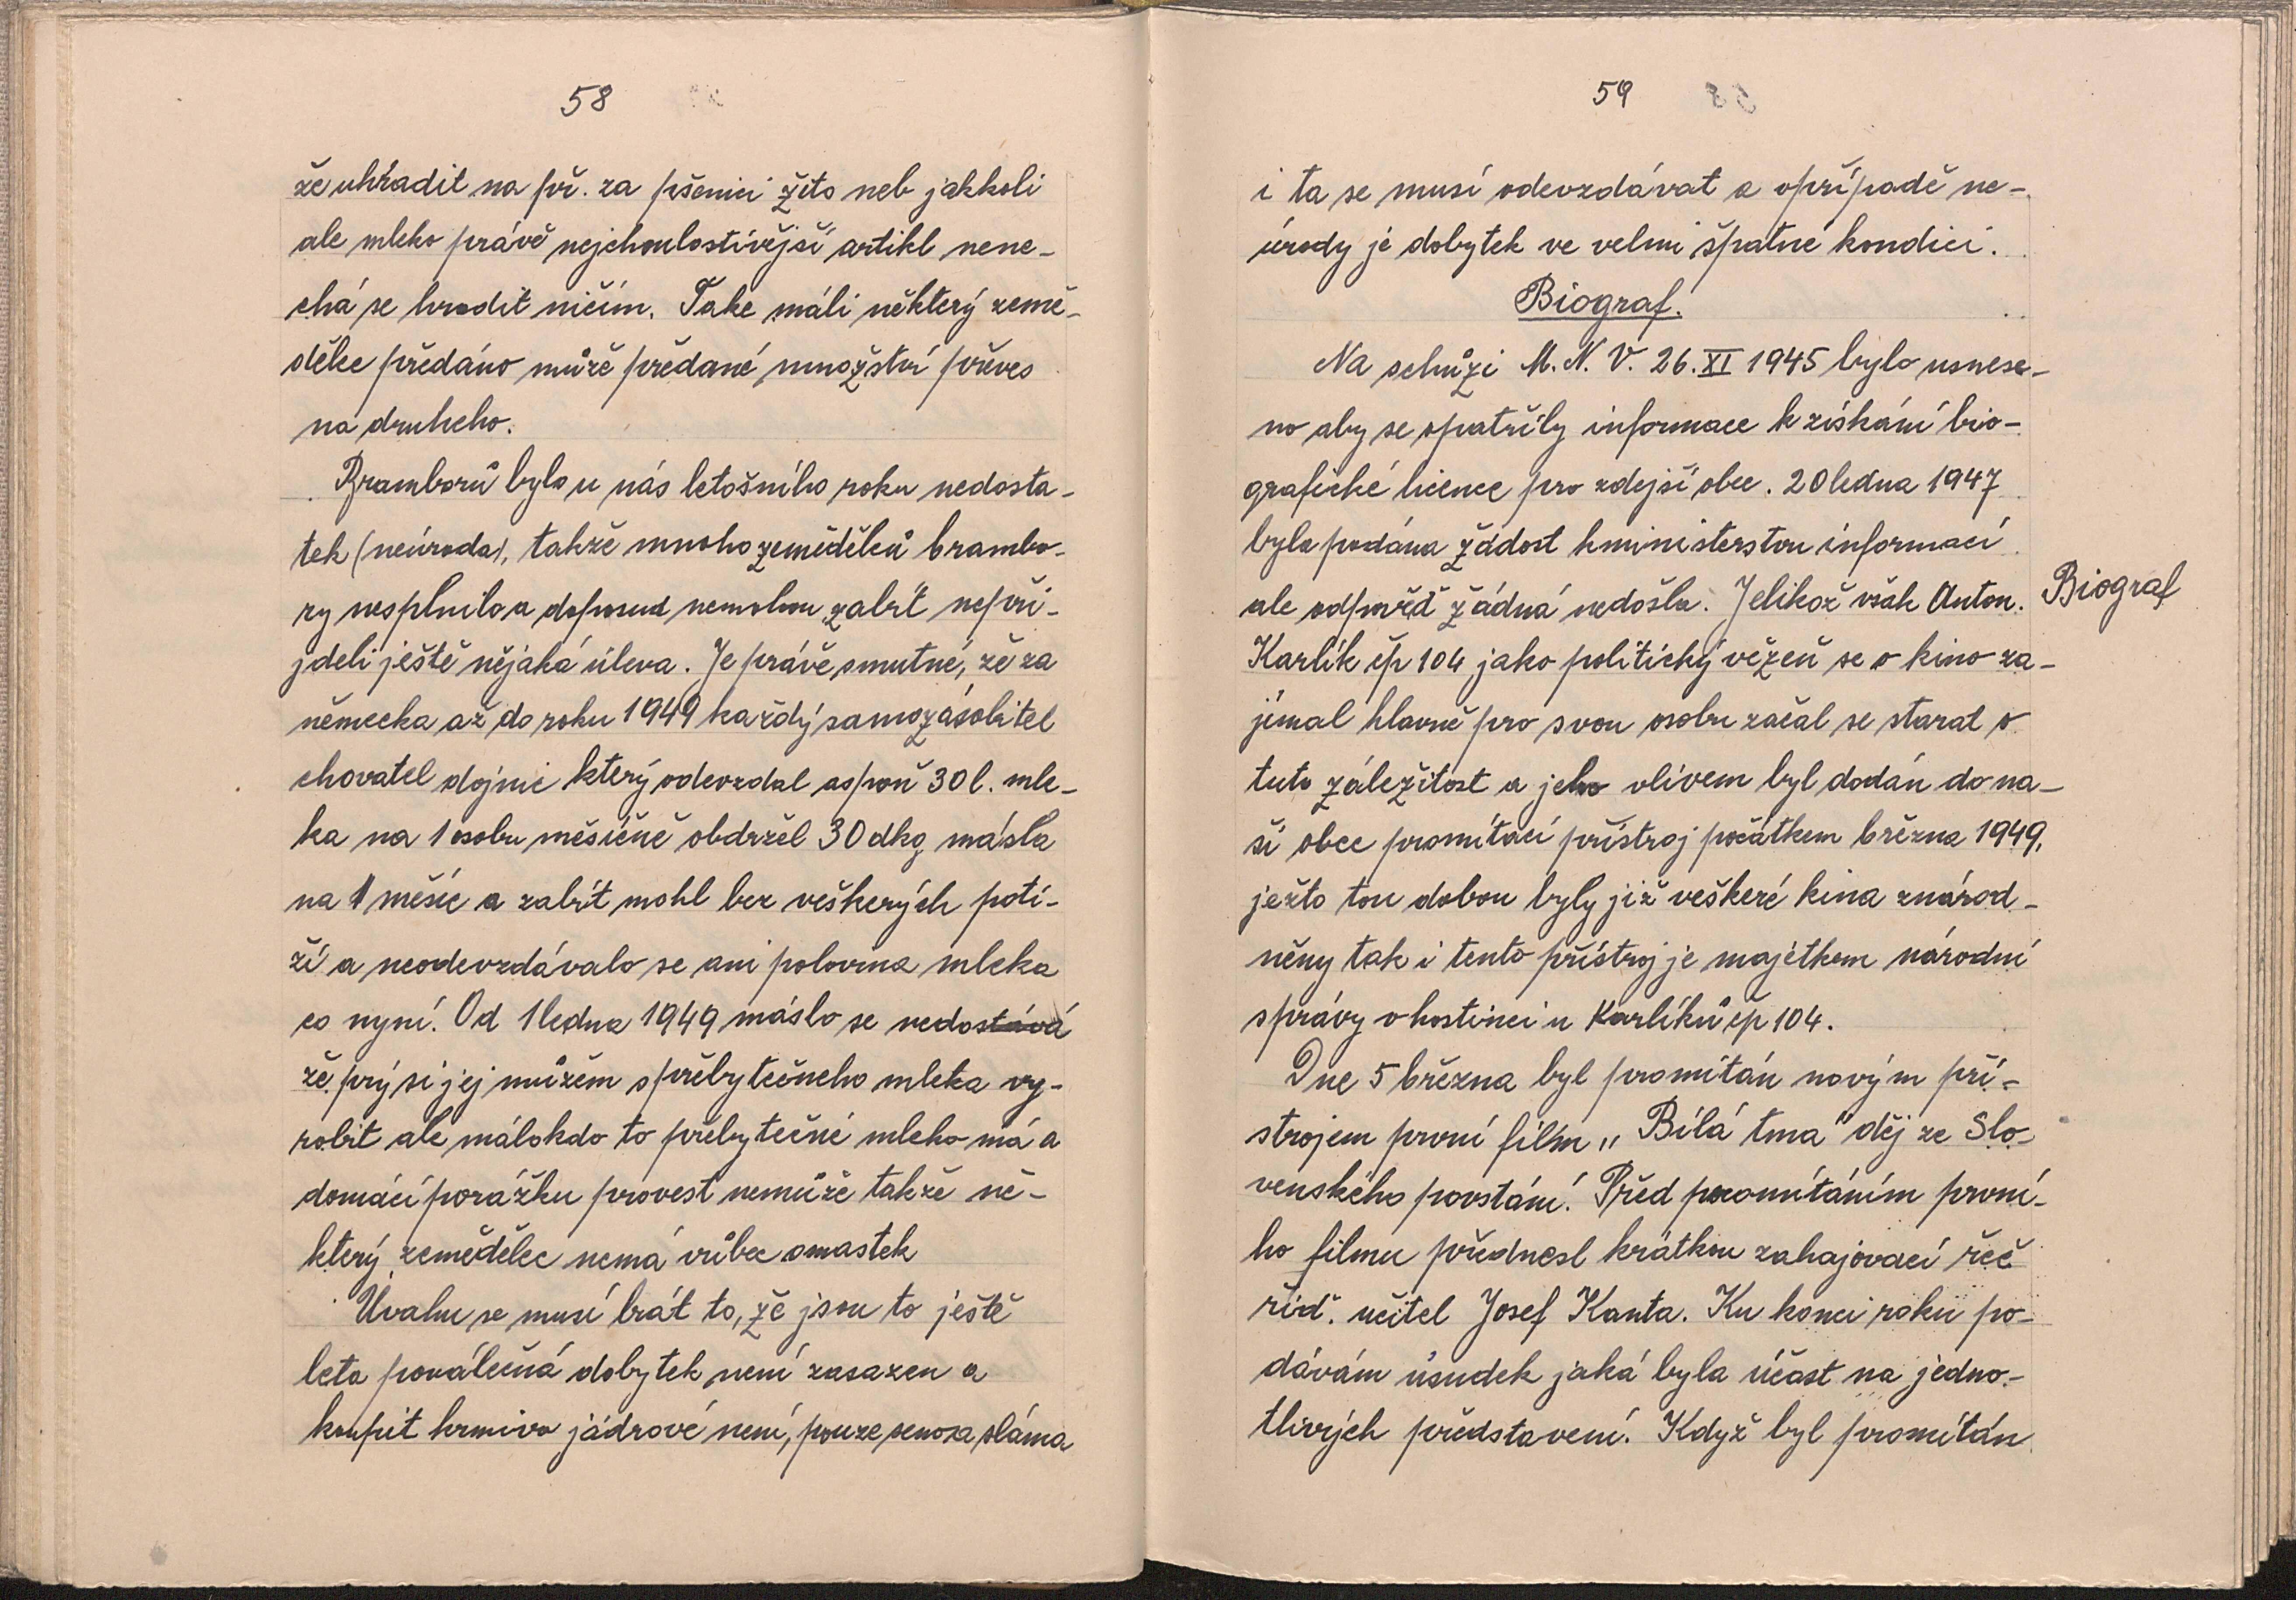 58
že uhradit na př. za pšenici žito neb jakkoli
ale mleko právě nejchoulostivější artikl nene-
chá se hradit ničím. Take máli některý země-
dělec předáno může předané množství převes
na druheho.
Bramborů bylo u nás letošního roku nedosta-
tek (neúroda), takže mnoho zemědělců brambo-
ry nesplnilo a doposud nemohou zabít nepři-
jdeli ještě nějaká úleva. Je právě smutné, že za
německa až do roku 1949 každý samozásobitel
chovatel dojnic který odevzdal aspoň 30 l. mle-
ka na 1 osobu měsíčně obdržel 30 dkg másla
na 1 měsíc a zabít mohl bez veškerých potí-
ží a neodevzdávalo se ani polovina mleka
co nyní. Od 1 ledna 1949 máslo se nedostává
že prý si jej můžem s přebytečneho mleka vy-
robit ale málokdo to přebytečné mleko má a
domácí porážku provest nemůže takže ně-
který zemědělec nemá vůbec omastek
Úvahu se musí brát to, že jsou to ještě
leta poválečná dobytek není zasazen a
koupit krmivo jádrové není, pouze seno a sláma
59
i ta se musí odevzdávat a vpřípadě ne-
úrody je dobytek ve velmi špatné kondici.
Biograf.
Na schůzi M. N. V. 26. XI 1945 bylo usnese-
no aby se opatřily informace k získání bio-
grafické licence pro zdejší obec. 20 ledna 1947
byla podána žádost kministerstvu informací
ale odpověď žádná nedošla. Jelikož však Anton.
Biograf
Karlík čp 104 jako politický vězeň se o kino za-
jímal hlavně pro svou osobu začal se starat o
tuto záležitost a jeho vlivem byl dodán do na-
ší obce promítací přístroj počátkem března 1949,
ježto tou dobou byly již veškeré kina znárod-
něny tak i tento přístroj je majetkem národní
správy v hostinci u Karlíků čp 104.
Dne 5 března byl promítán novým pří-
strojem první film „Bílá tma" děj ze Slo-
venského povstání. Před promítáním první-
ho filmu přednesl krátkou zahajovací řeč
říd. učitel Josef Kanta. Ku konci roku po-
dávám úsudek jaká byla účast na jedno-
tlivých představení. Když byl promítán